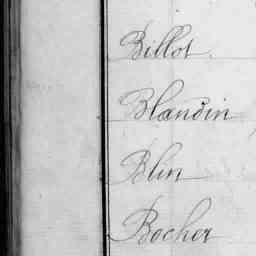 Billot
Blandin
Blin
Bocher